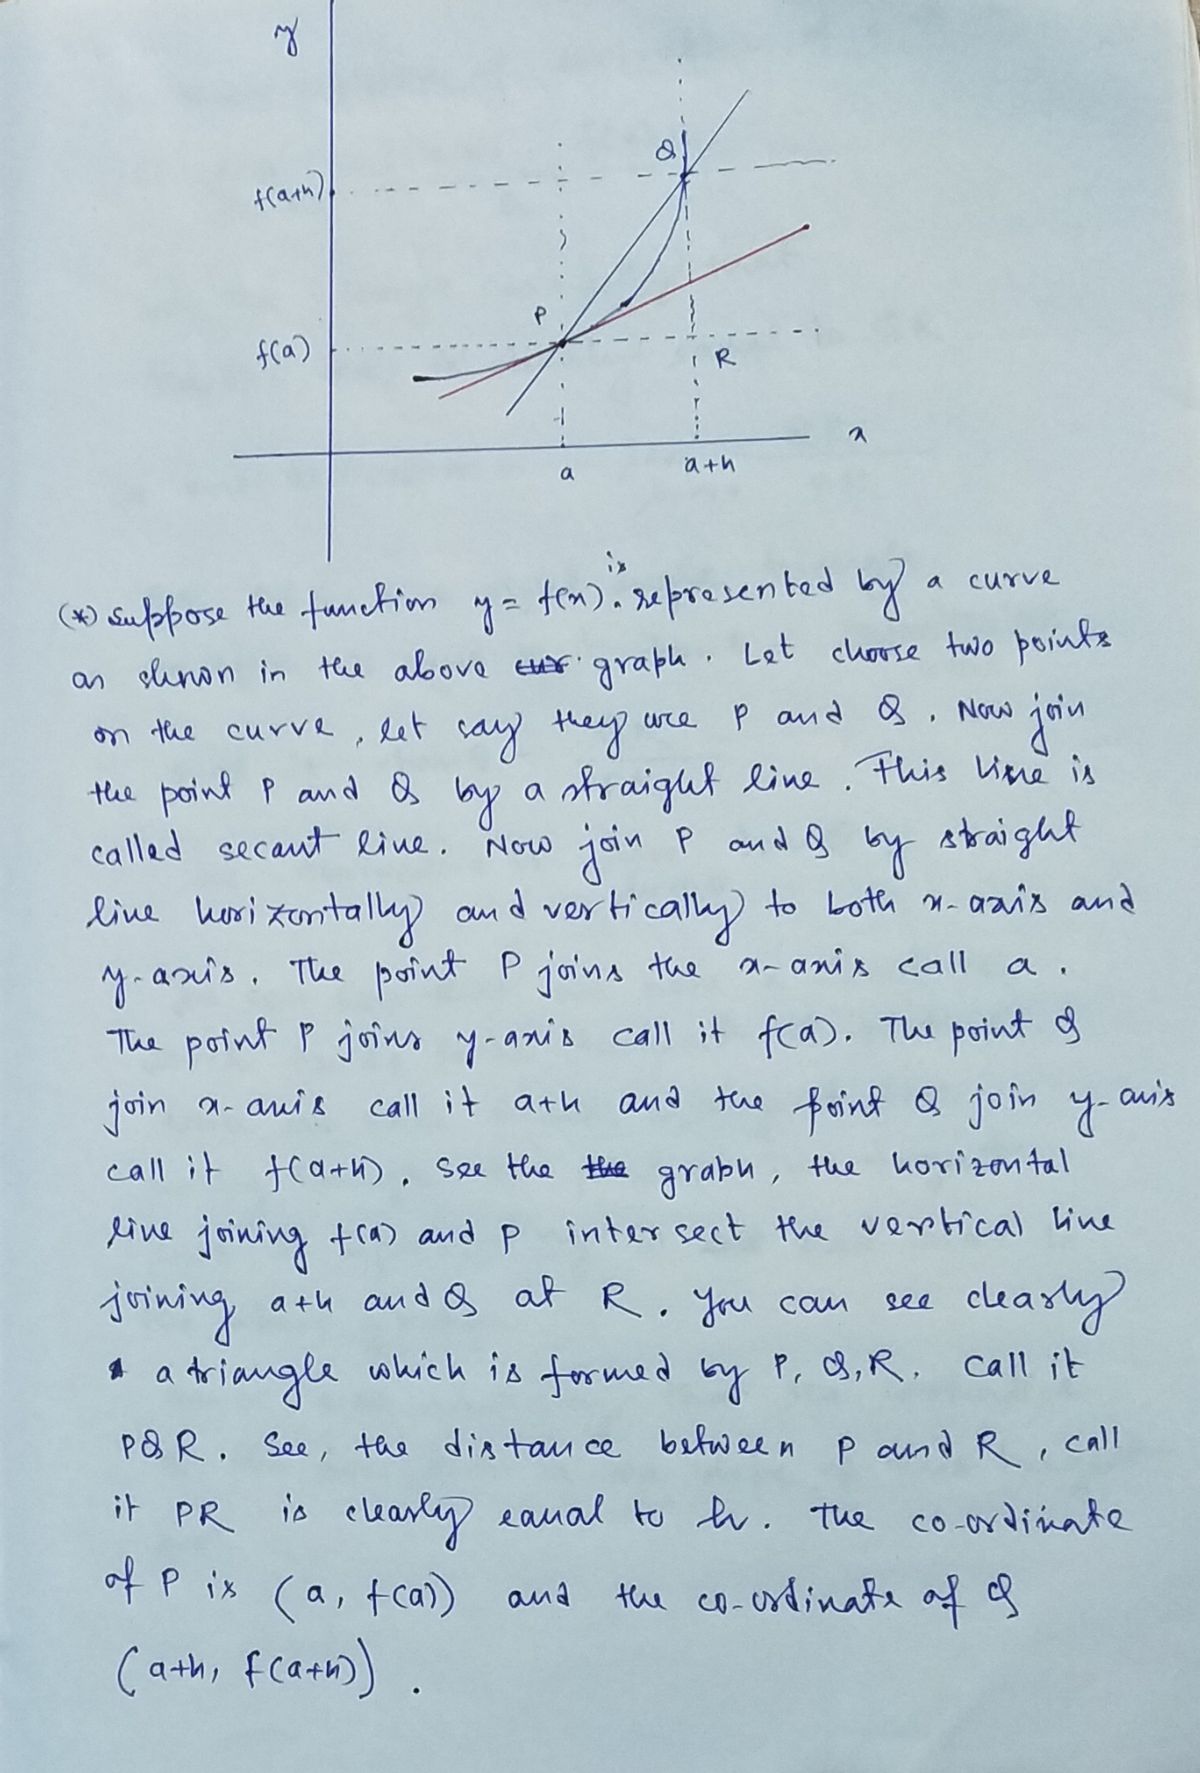 y
Q
f(a+h)
P
f(a)
R
x
a
a+h
(*) Suppose the function y = f(x) is represented by a curve
as shown in the above graph. Let choose two points
on the curve, let say they are P and Q. Now join
the point P and Q by a straight line. This line is
called secant line. Now join P and Q by straight
line horizontally and vertically to both x-axis and
y-axis. The point P joins the x-axis call a.
The point P joins y-axis call it f(a). The point Q
join x-axis call it a+h and the point Q join y-axis
call it f(a+h). See the the graph, the horizontal
line joining f(a) and P intersect the vertical line
joining a+h and Q at R. You can see clearly
a triangle which is formed by P, Q, R. Call it
PQR. See, the distance between P and R, call
it PR is clearly equal to h. The co-ordinate
of P is (a, f(a)) and the co-ordinate of Q
(a+h, f(a+h)).